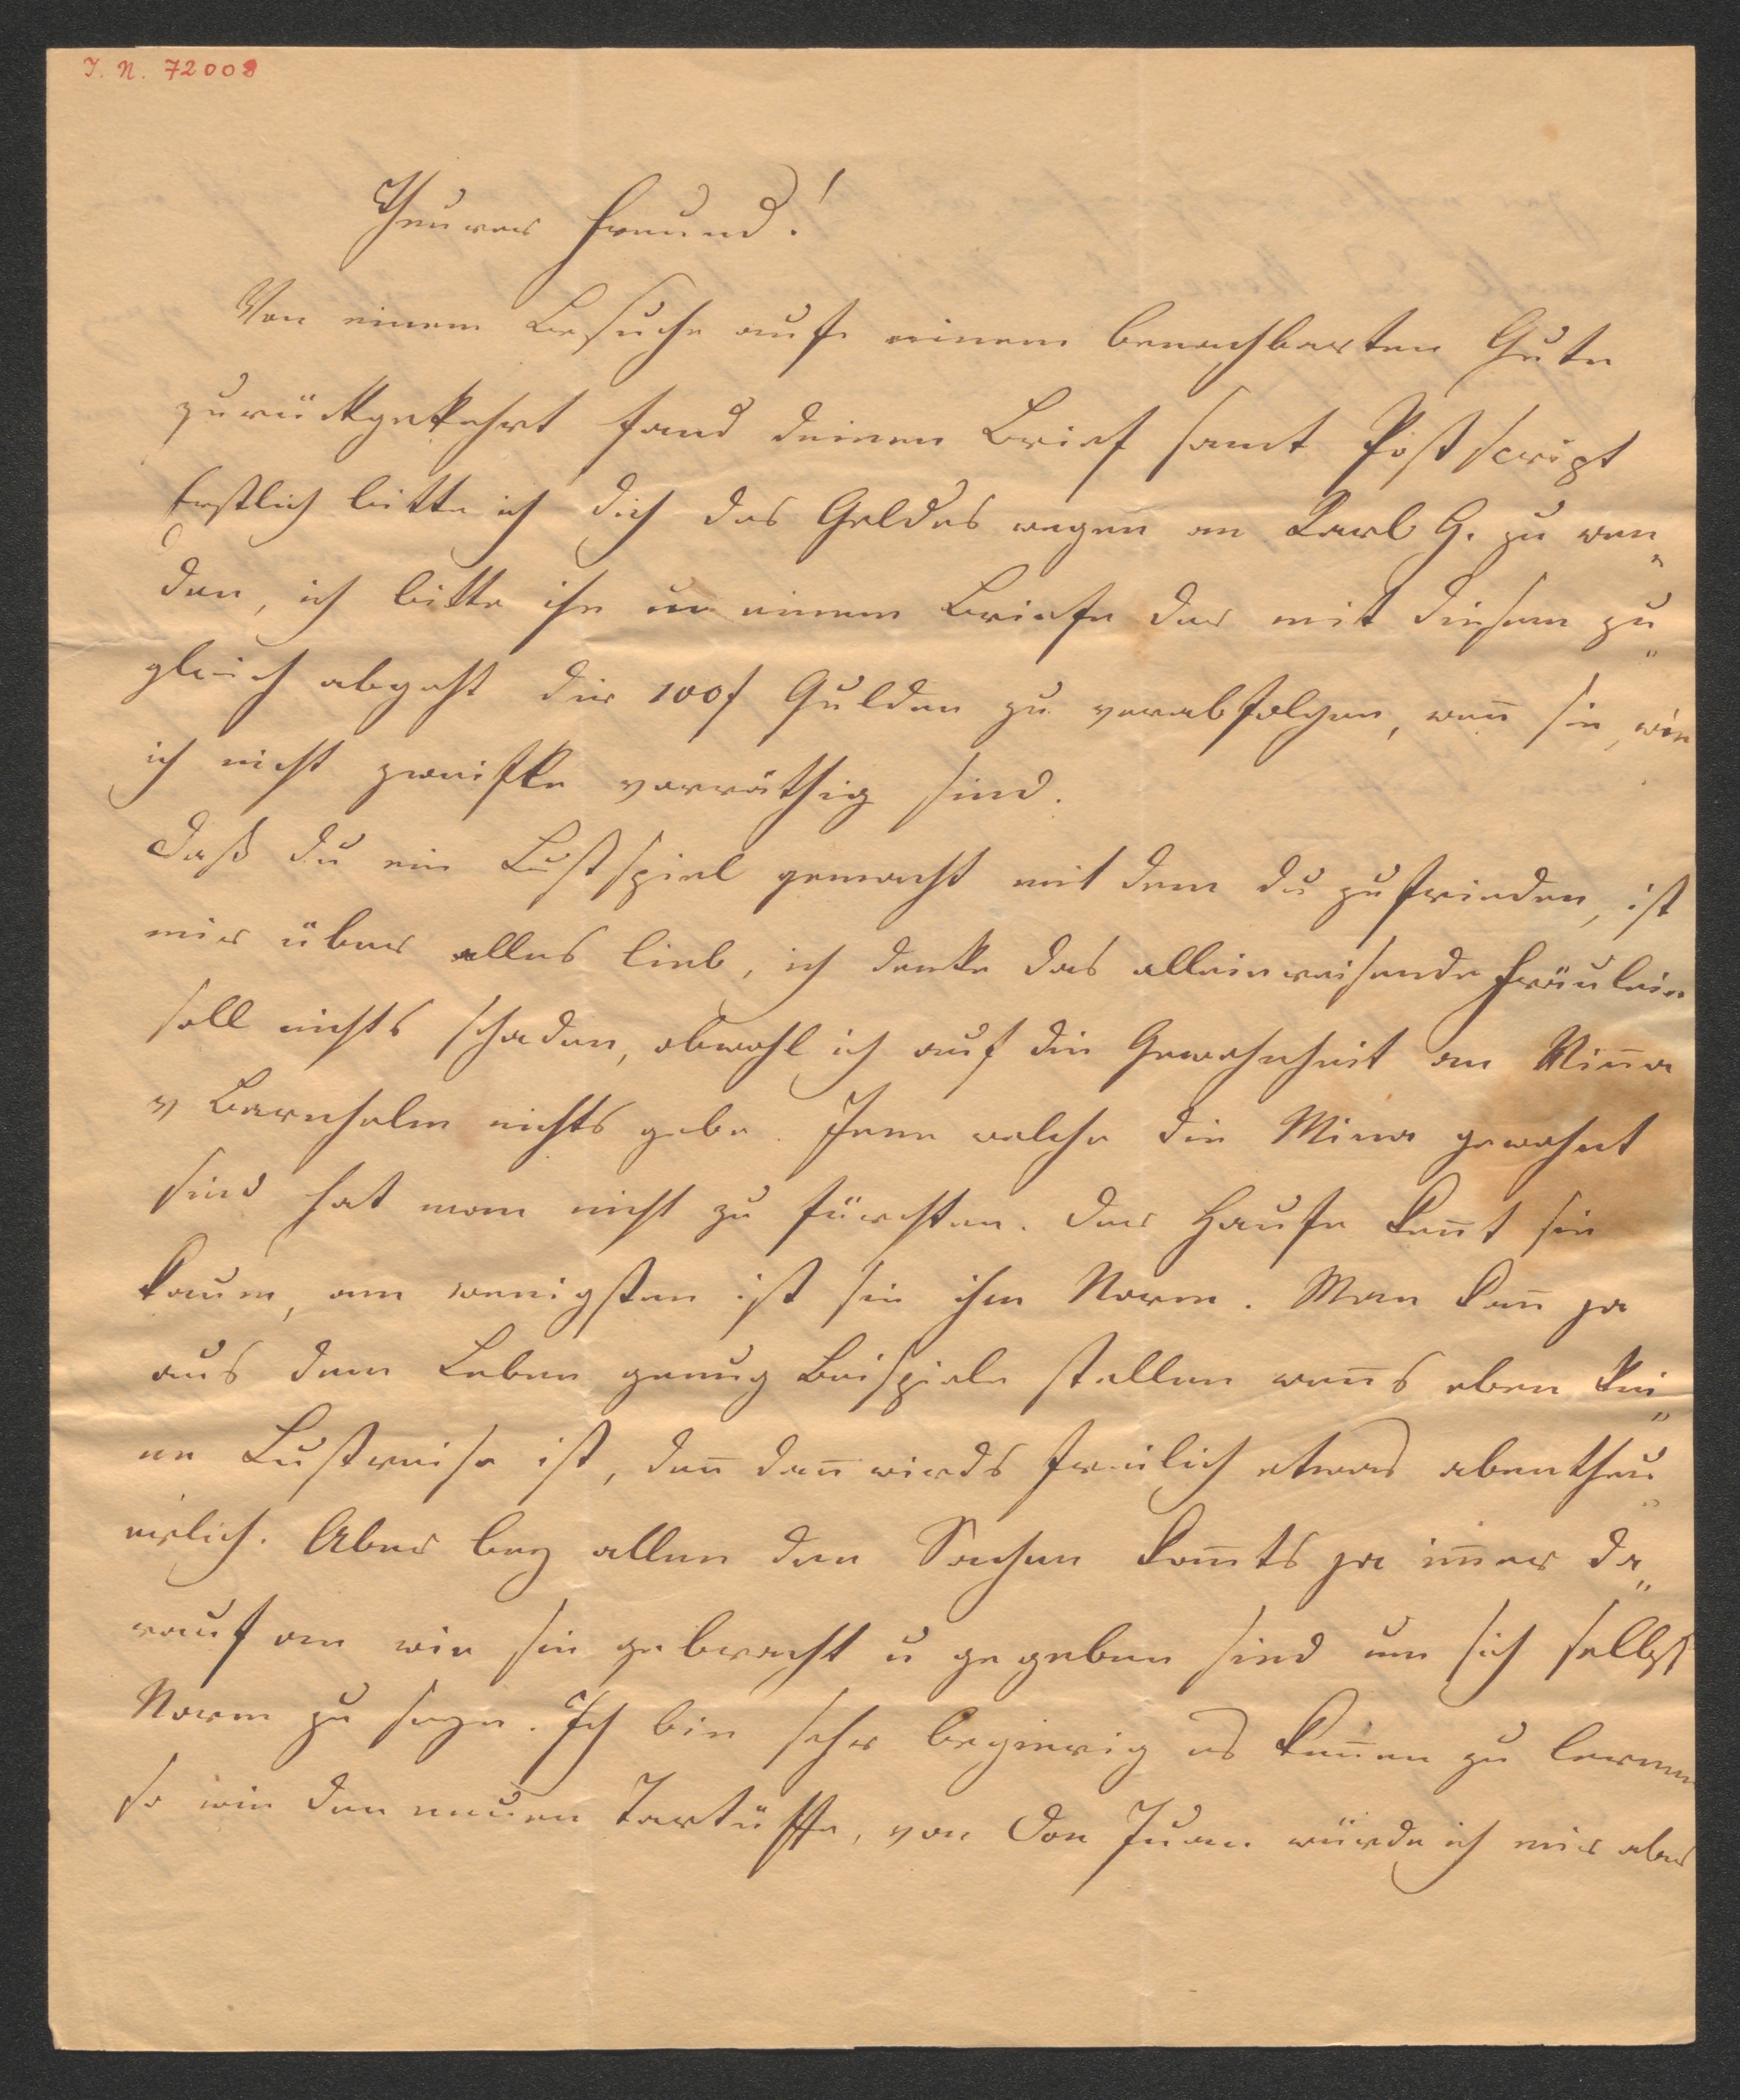 I. N. 72008
Theurer Freund!
Von einem Besuche auf einem benachbarten Gute
zurückgekehrt fand deinen Brief samt Postscript
Erstlich bitte ich dich des Geldes wegen an Karl G. zu wen„
den, ich bitte ihn in einem Briefe der mit diesem zu„
gleich abgeht dir 100f Gulden zu verabfolgen, weñ sie, wie
ich nicht zweifle vorräthig sind.
Daß du ein Lustspiel gemacht mit dem du zufrieden, ist
mir über alles lieb, ich denke das alleinreisende Fräulein
soll nichts schaden, obwohl ich auf die Gewohnheit an Miña
v Barnhelm nichts gebe. Jene welche die Mina gewohnt
sind hat man nicht zu fürchten. Der Haufe keñt sie
kaum, am wenigsten ist sie ihm Norm. Man kañ ja
aus dem Leben genug Beispiele stellen weñs eben kei„
ne Lustreise ist, deñ dañ wirds freilich etwas abentheu„
erlich. Aber bey allen den Sachen kom̃ts ja im̃er da„
rauf an wie sie gebracht u gegeben sind um sich selbst
Norm zu seyn. Ich bin sehr begierig es keñen zu lernen
so wie den neuen Tartüffe, von Don Juan würde ich mir aber